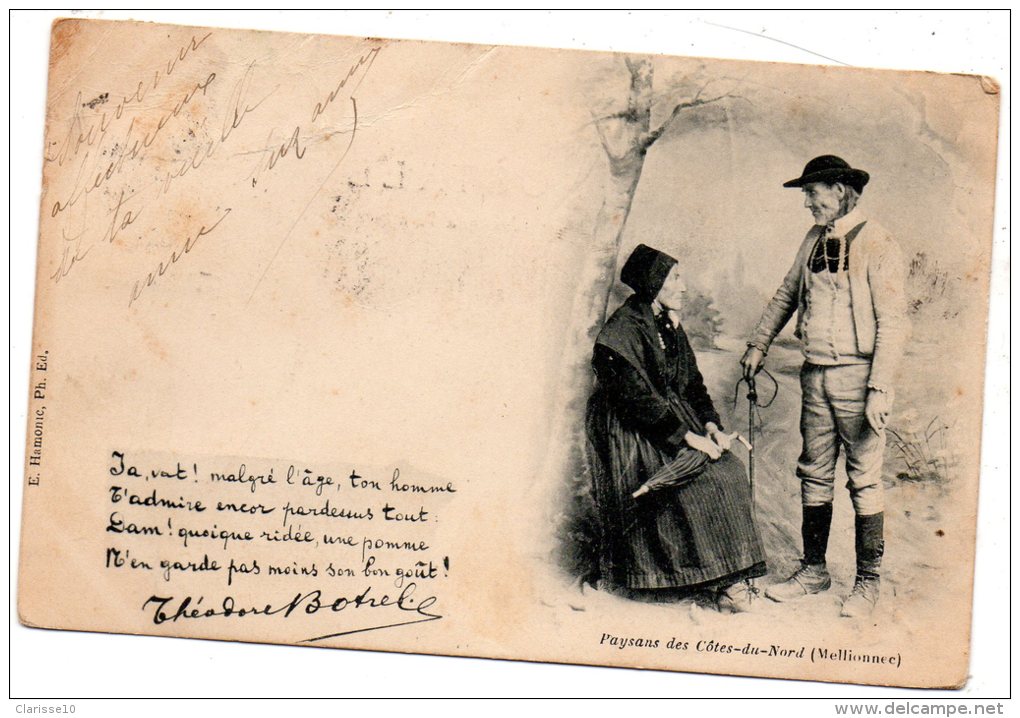 Souvenir
affectueux
de ta vieille
amie
E. Hamonic, Ph. Ed.
Ia, vat! malgré l'âge, ton homme
T'admire encor pardessus tout:
Dam! quoique ridée, une pomme
N'en garde pas moins son bon goût!
Théodore Botrel
Paysans des Côtes-du-Nord (Mellionnec)
Clarisse10
www.delcampe.net